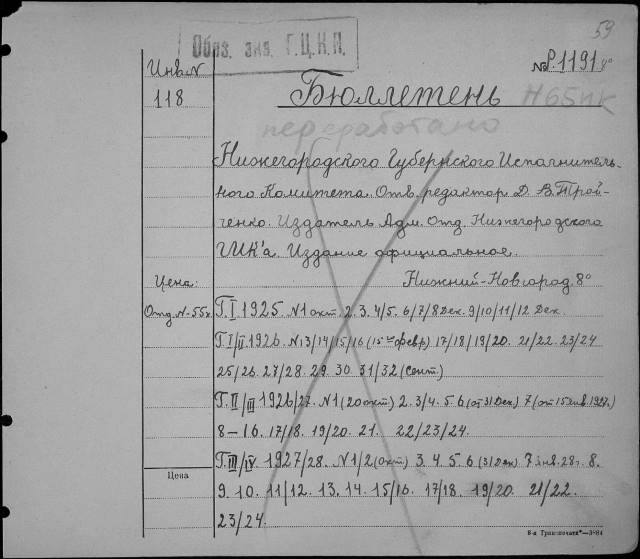 59
Обяз. экз. Г.Ц.К.П.
Инв. N
№ Р.1191 8°
118
Бюллетень
Н65ик
переработано
Нижегородского Губернского Исполнитель-
ного Комитета. Отв. редактор Д. В. Трой-
ченко. Издатель Адм. Отд. Нижегородского
ГИК'а. Издание официальное.
Нижний-Новгород. 8°
Цена:
Отд. N-55к.
Г. I. 1925. N1 окт. 2. 3. 4/5. 6/7/8 Дек. 9/10/11/12 Дек.
Г. I/II 1926. N13/14/15/16 (15ое февр) 17/18/19/20. 21/22. 23/24
25/26. 27/28. 29. 30. 31/32 (сент.)
Г. II/III 1926/27. N1 (20 окт) 2. 3/4. 5. 6 (от 31 Дек) 7 (от 15 янв. 1927.)
8-16. 17/18. 19/20. 21. 22/23/24.
Г. III/IV 1927/28. N1/2 (окт) 3. 4. 5. 6 (31 Дек) 7 янв. 28г. 8.
Цена
9. 10. 11/12. 13. 14. 15/16. 17/18. 19/20. 21/22.
23/24.
8-я Транспечати"—3984